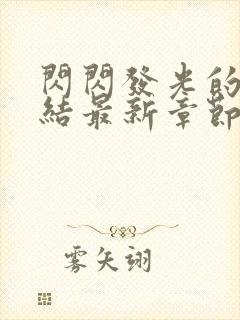 閃閃發光的
結最新章節
雾矢翊